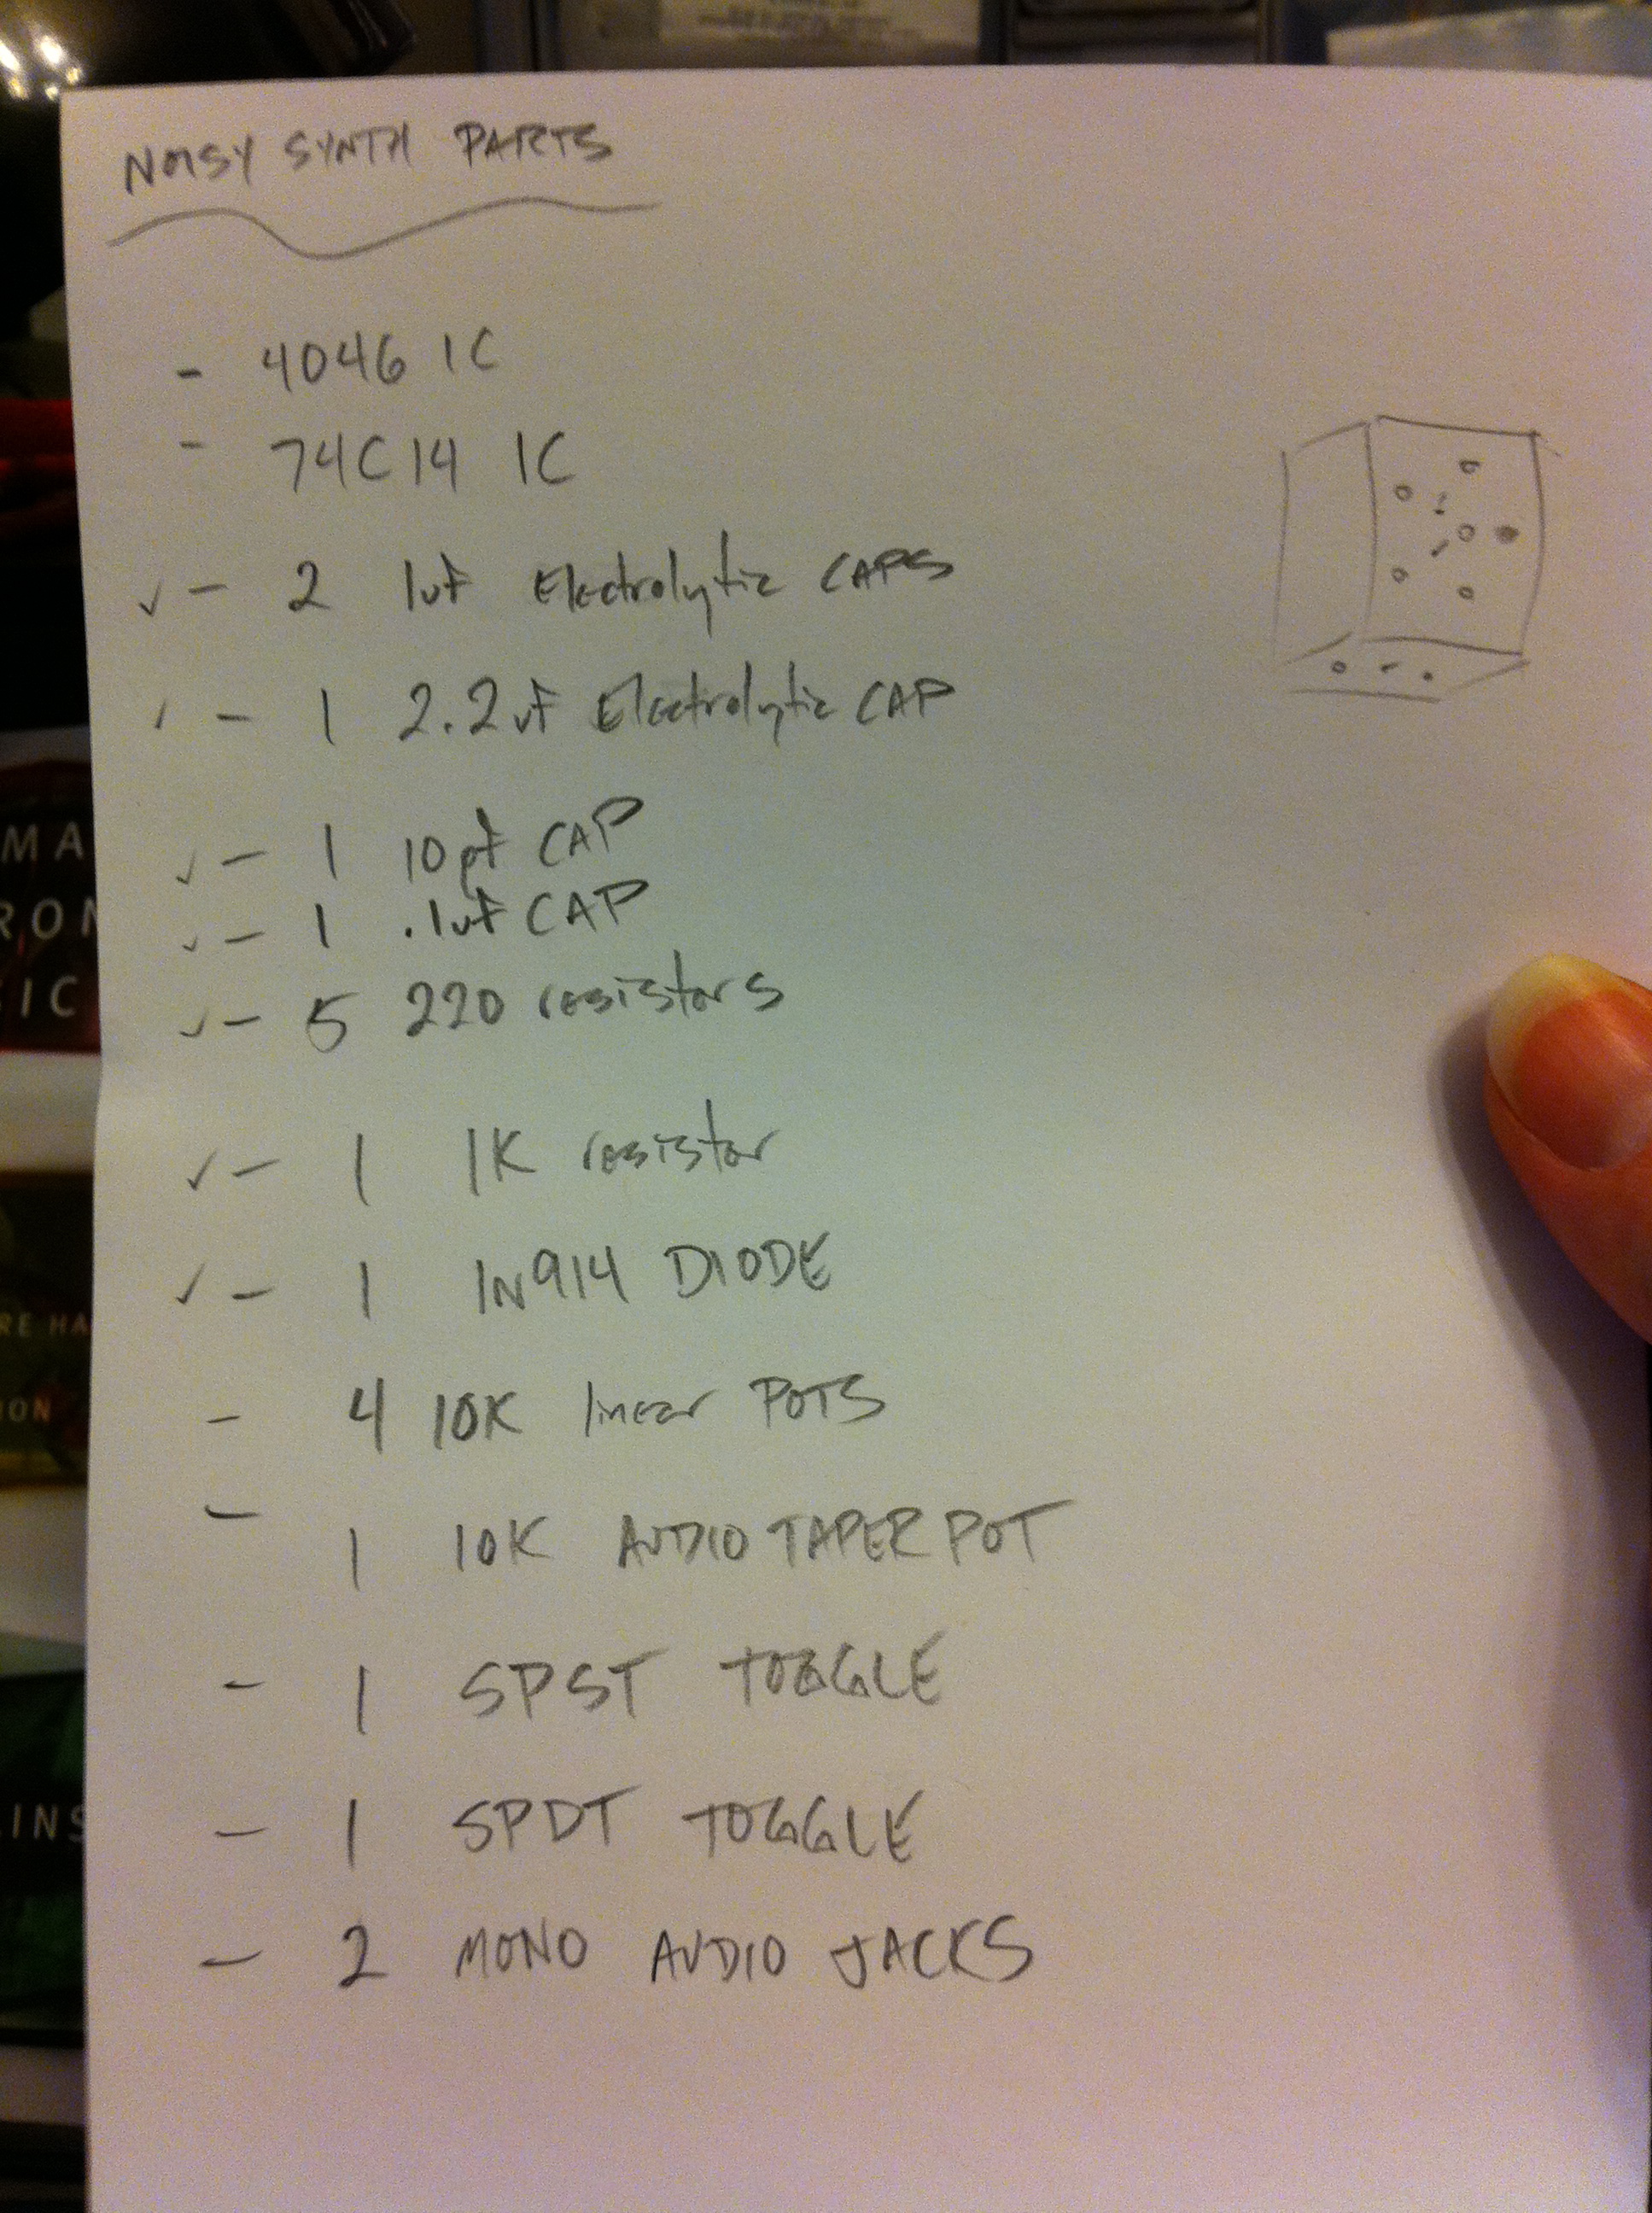 NOISY SYNTH PARTS
- 4046 IC
- 74C14 IC
✓ - 2 1uf Electrolytic CAPS
✓ - 1 2.2uf Electrolytic CAP
✓ - 1 10pf CAP
✓ - 1 .1uf CAP
✓ - 5 220 resistors
✓ - 1 1K resistor
✓ - 1 1N914 DIODE
- 4 10K linear POTS
- 1 10K AUDIO TAPER POT
- 1 SPST TOGGLE
- 1 SPDT TOGGLE
- 2 MONO AUDIO JACKS
MA
RON
SIC
RE HA
ION
LINS